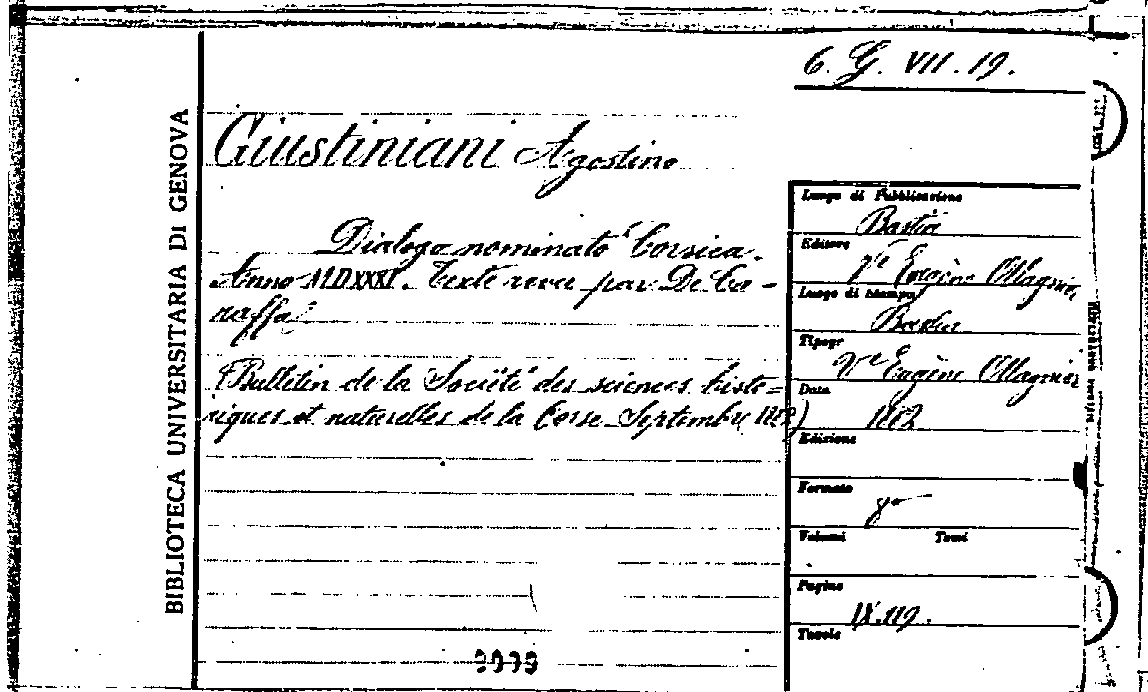 6. G. VII. 19.
BIBLIOTECA UNIVERSITARIA DI GENOVA
Giustiniani Agostino
Dialogo nominato Corsica.
Anno MDXXXI. Texte revu par De Ca-
raffa
(Bulletin de la Société des sciences histo-
riques et naturelles de la Corse Septembre 1882)
Luogo di Pubblicazione
Bastia
Editore
Vve Eugène Ollagnier
Luogo di stampa
Bastia
Tipogr
Vve Eugène Ollagnier
Data
1882
Edizione
Formato
8°
Volumi Tomi
Pagine
IX.119.
Tavole